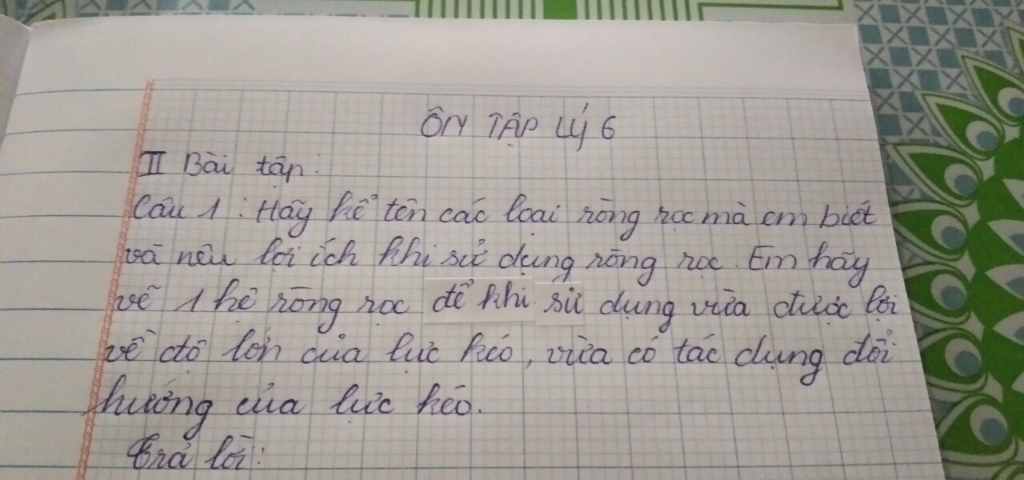 ÔN TẬP LÝ 6
II Bài tập:
Câu 1: Hãy kể tên các loại ròng rọc mà em biết
và nêu lợi ích khi sử dụng ròng rọc. Em hãy
vẽ 1 hệ ròng rọc để khi sử dụng vừa được lợi
về độ lớn của lực kéo, vừa có tác dụng đổi
hướng của lực kéo.
Trả lời: